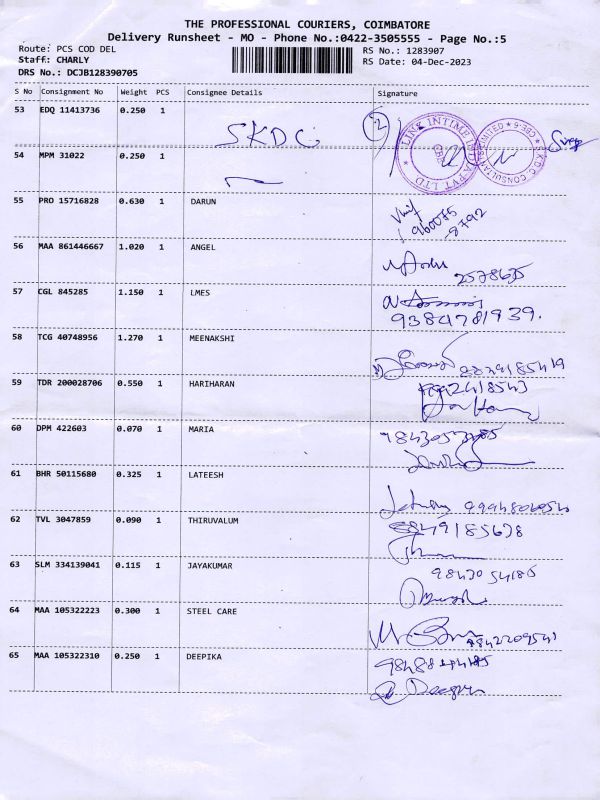 THE PROFESSIONAL COURIERS, COIMBATORE
Delivery Runsheet - MO - Phone No.:0422-3505555 - Page No.:5
Route: PCS COD DEL
RS No.: 1283907
Staff: CHARLY
RS Date: 04-Dec-2023
DRS No.: DCJB128390705
S No Consignment No Weight PCS Consignee Details Signature
53 EDQ 11413736 0.250 1
SKDC
2
LINK INTIME INDIA PVT LTD
CBE
S.K.D.C. CONSULTANTS LIMITED
CBE-6
54 MPM 31022 0.250 1
55 PRO 15716828 0.630 1 DARUN
960075
8792
56 MAA 861446667 1.020 1 ANGEL
2578635
57 CGL 845285 1.150 1 LMES
9384781939.
58 TCG 40748956 1.270 1 MEENAKSHI
59 TDR 200028706 0.550 1 HARIHARAN
60 DPM 422603 0.070 1 MARIA
61 BHR 50115680 0.325 1 LATEESH
62 TVL 3047859 0.090 1 THIRUVALUM
8849185678
63 SLM 334139041 0.115 1 JAYAKUMAR
9843054185
64 MAA 105322223 0.300 1 STEEL CARE
9842209541
65 MAA 105322310 0.250 1 DEEPIKA